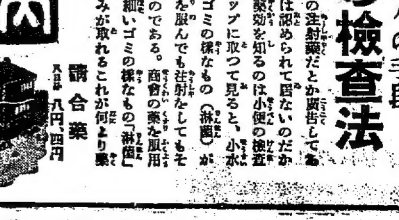 の手段
檢查法
の注射藥だとか廣告してあ
は認められて居ないのだか
藥効を知るのは小便の檢查
ップに取つて見ると、小水
ゴミの樣なもの（淋菌）が
を服んでも注射をしてもそ
のである。商會の藥を服用
細いゴミの樣なもの「淋菌」
みが取れるこれが何より藥
請合藥
八円、四円